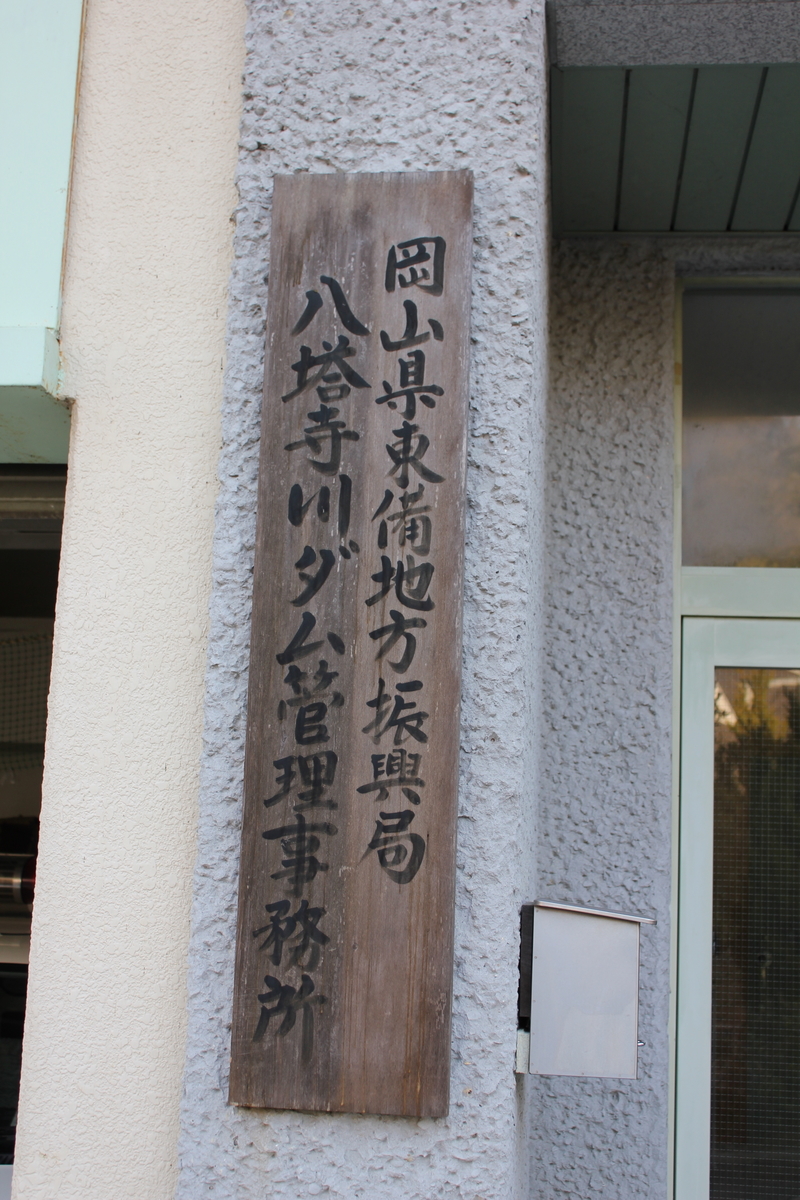 岡山県東備地方振興局
八塔寺川ダム管理事務所